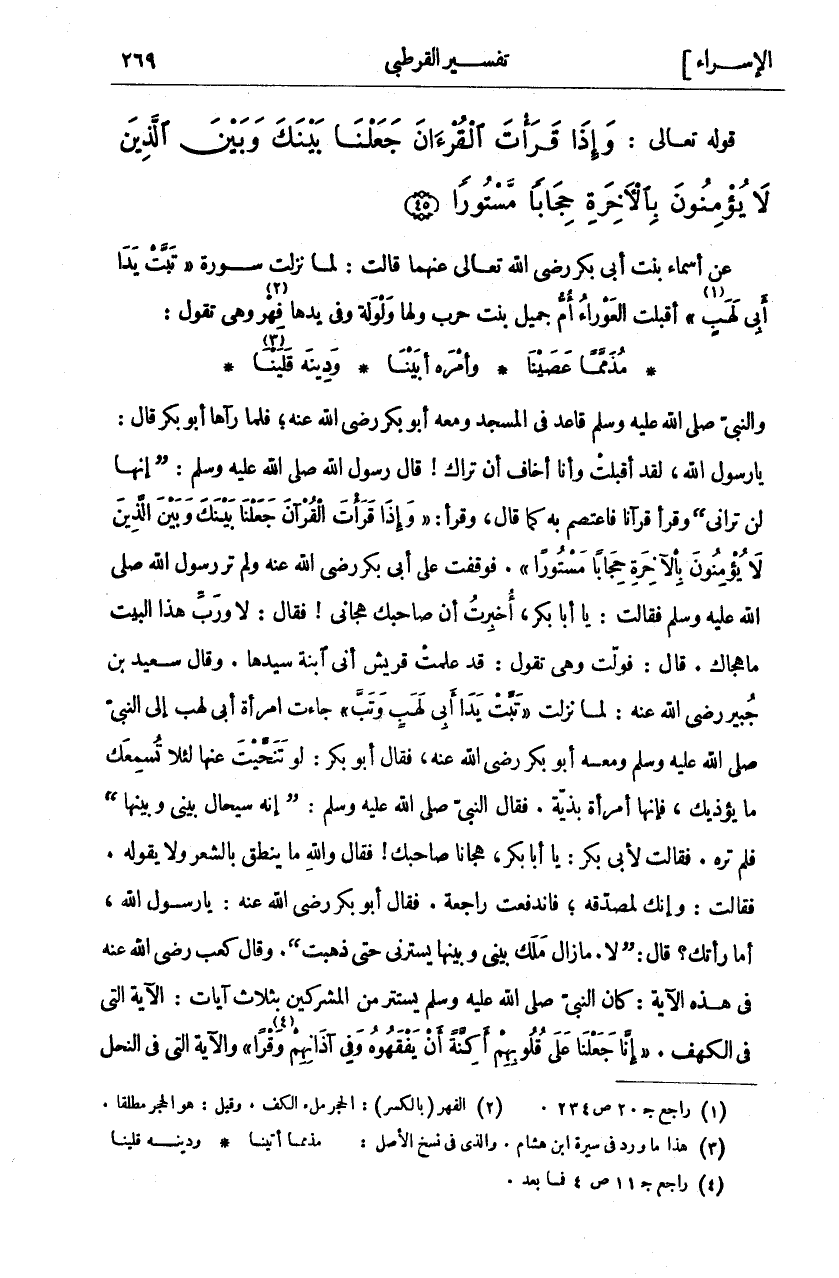 الإسراء] تفسير القرطبي ٢٦٩
قوله تعالى : وَإِذَا قَرَأْتَ ٱلْقُرْءَانَ جَعَلْنَا بَيْنَكَ وَبَيْنَ ٱلَّذِينَ
لَا يُؤْمِنُونَ بِٱلْآخِرَةِ حِجَابًا مَّسْتُورًا ﴿٤٥﴾
عن أسماء بنت أبى بكر رضى الله تعالى عنهما قالت : لما نزلت سورة « تَبَّتْ يَدَا
أَبِى لَهَبٍ (١) » أقبلت العَوْراءُ أُمُّ جميل بنت حرب ولها وَلْوَلة وفى يدها فِهْر (٢) وهى تقول :
* مُذَمَّمًا عَصَيْنَا * وأمْرَه أبَيْنَا * وَدِينَه قَلَيْنَا (٣) *
والنبىّ صلى الله عليه وسلم قاعد فى المسجد ومعه أبو بكر رضى الله عنه؛ فلما رآها أبو بكر قال :
يارسول الله ، لقد أقبلتْ وأنا أخاف أن تراك ! قال رسول الله صلى الله عليه وسلم : ”إنها
لن ترانى“ وقرأ قرآنا فاعتصم به كما قال، وقرأ : « وَإِذَا قَرَأْتَ الْقُرْآنَ جَعَلْنَا بَيْنَكَ وَبَيْنَ الَّذِينَ
لَا يُؤْمِنُونَ بِالْآخِرَةِ حِجَابًا مَسْتُورًا » . فوقفت على أبى بكر رضى الله عنه ولم تر رسول الله صلى
الله عليه وسلم فقالت : يا أبا بكر، أُخبِرتُ أن صاحبك هجانى ! فقال : لا ورَبِّ هذا البيت
ماهجاك . قال : فولّت وهى تقول : قد علمتْ قريش أنى آبنة سيدها . وقال سعيد بن
جُبير رضى الله عنه : لما نزلت «تَبَّتْ يَدَا أَبِى لَهَبٍ وَتَبَّ» جاءت امرأة أبى لهب إلى النبىّ
صلى الله عليه وسلم ومعه أبو بكر رضى الله عنه، فقال أبو بكر : لو تَنَحَّيْتَ عنها لئلا تُسمِعك
ما يؤذيك ، فإنها أمرأة بذيّة . فقال النبىّ صلى الله عليه وسلم : ” إنه سيحال بينى وبينها “
فلم تره . فقالت لأبى بكر : يا أبا بكر، هجانا صاحبك! فقال والله ما ينطق بالشعر ولا يقوله .
فقالت : وإنك لمصدّقه ؛ فاندفعت راجعة . فقال أبو بكر رضى الله عنه : يارسول الله ،
أما رأتك؟ قال: ”لا . مازال مَلَك بينى وبينها يسترنى حتى ذهبت“. وقال كعب رضى الله عنه
فى هذه الآية : كان النبىّ صلى الله عليه وسلم يستتر من المشركين بثلاث آيات : الآية التى
فى الكهف . « إِنَّا جَعَلْنَا عَلَى قُلُوبِهِمْ أَكِنَّةً أَنْ يَفْقَهُوهُ وَفِى آذَانِهِمْ وَقْرًا (٤)» والآية التى فى النحل
(١) راجع جـ ٢٠ ص ٢٣٤ . (٢) الفهر (بالكسر) : الحجر ملء الكف . وقيل : هو الحجر مطلقا .
(٣) هذا ما ورد فى سيرة ابن هشام . والذى فى نسخ الأصل : مذمما أتينا * ودينه قلينا
(٤) راجع جـ ١١ ص ٤ فما بعد .